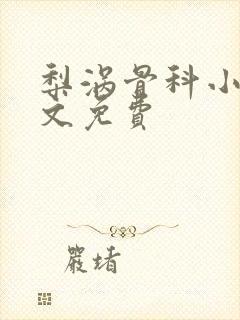 梨涡骨科小
文免費
嚴堵